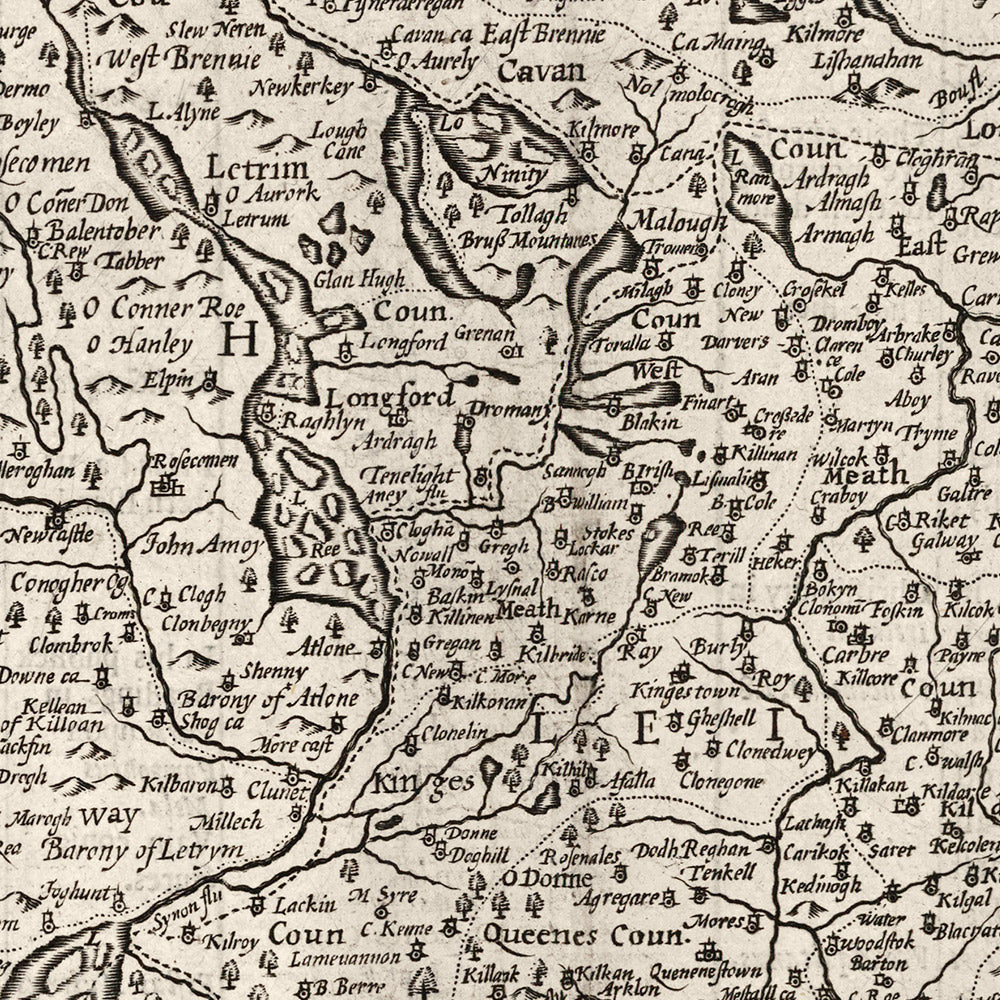 Slew Neren
West Brennie
Cavan ca East Brennie
O Aurely
Cavan
Newkerkey
Ca Maing
Kilmore
Lishanahan
Nol
molocrogh
Boyley
L. Alyne
Lough
Cane
Lo
Ninity
Kilmore
Cana
Letrim
O Aurork
Letrum
Coun
L
Ran
more
Ardragh
Almash
Armagh
Cloghran
East
O Coñer Don
Balentober
C Rew
Tabber
Tollagh
Bruß Mountanes
Malough
Tromen
Glan Hugh
Milagh
Cloney
Crosekel
Kelles
O Conner Roe
O Hanley
H
Coun.
Longford
Grenan
Coun
New
Toralla
Darvers
Dromboy
Claren
ce
Arbrake
Churley
Elpin
Longford
West
Aran
Cole
Aboy
Raghlyn
Ardragh
Dromany
Blakin
Finart
Croßede
re
Martyn
Thryme
Killinan
Wilcok
Meath
Rosecomen
Tenelight
Aney flu
Sannogh
B. Irish
B William
Lisnalin
B. Cole
Craboy
Galtre
Newcastle
John Amoy
L
Ree
Clogha
Nowall
Gregh
Stokes
Lockar
Ree
Terill
Bramok
Heker
Riket
Galway
Conogher Og
C. Clogh
Clonbegny
Mono
Baskin
Killinen
Lysnal
Meath
Rasco
Karne
C. New
Bokyn
Clonomi
Foskin
Kilcok
Croms
Clombrok
Downe ca
Atlone
Gregan
Kilbride
Ray
Burly
Carbre
Killcore
Payne
Shenny
Barony of Atlone
C New
C. More
Kilkoran
Kingestown
Roy
Coun
Kellean
of Killoan
Shog ca
More cast
Clonelin
L E I
Gheshell
Clonedwey
Clanmore
C. Walsh
Drogh
Kilbaron
Clunet
Kinges
Kilhil
Afalla
Clonegone
Killakan
Kildare
Kil
Marogh
Way
Millech
Barony of Letrym
Donne
Doghill
Rosenales
O Donne
Dodh Reghan
Tenkell
Lachash
Carikok
Saret
Kelcolen
Foghunt
Synon flu
Lackin
M Syre
Agregare
Kedinogh
Kilgal
Kilroy
Coun
C. Kenne
Queenes Coun.
Mores
Water
Woodstok
Barton
Lamevannon
B. Berre
Killank
Kilkan
Arklon
Quenenestown
C. Roe